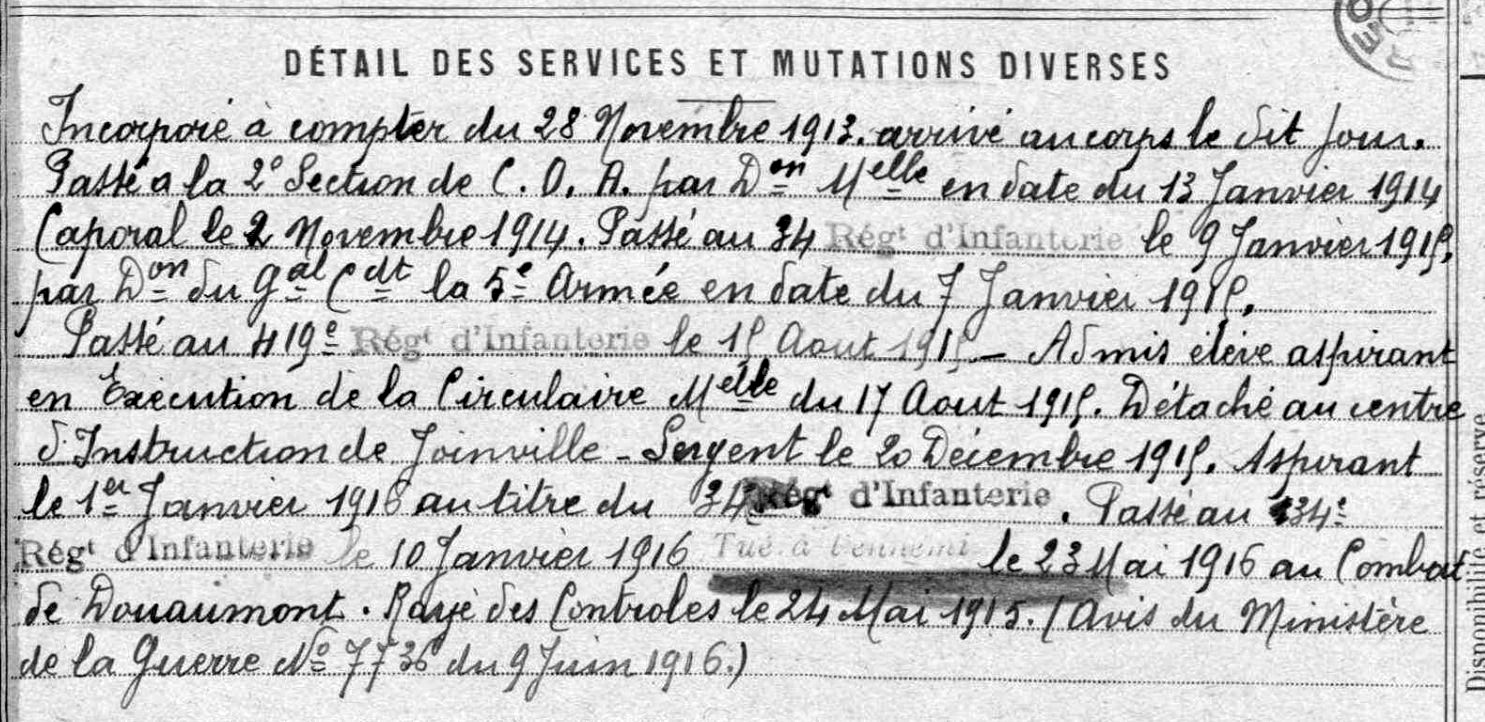 DÉTAIL DES SERVICES ET MUTATIONS DIVERSES
Incorporé à compter du 28 Novembre 1913. arrivé au corps le dit jour.
Passé à la 2e Section de C. O. A. par Don Melle en date du 13 Janvier 1914
Caporal le 2 Novembre 1914. Passé au 34 Régt d'Infanterie le 9 Janvier 1915,
par Don du Gal Cdt la 5e Armée en date du 7 Janvier 1915.
Passé au 419e Régt d'Infanterie le 15 Aout 1915 - Admis élève aspirant
en Exécution de la Circulaire Melle du 17 Aout 1915. Détaché au centre
d'Instruction de Joinville - Sergent le 20 Décembre 1915. Aspirant
le 1er Janvier 1916 au titre du 34 Régt d'Infanterie. Passé au 34e
Régt d'Infanterie le 10 Janvier 1916 Tué à l'ennemi le 23 Mai 1916 au Combat
de Douaumont. Rayé des Controles le 24 Mai 1915. (Avis du Ministère
de la Guerre No 7736 du 9 Juin 1916.)
Disponibilité et réserve